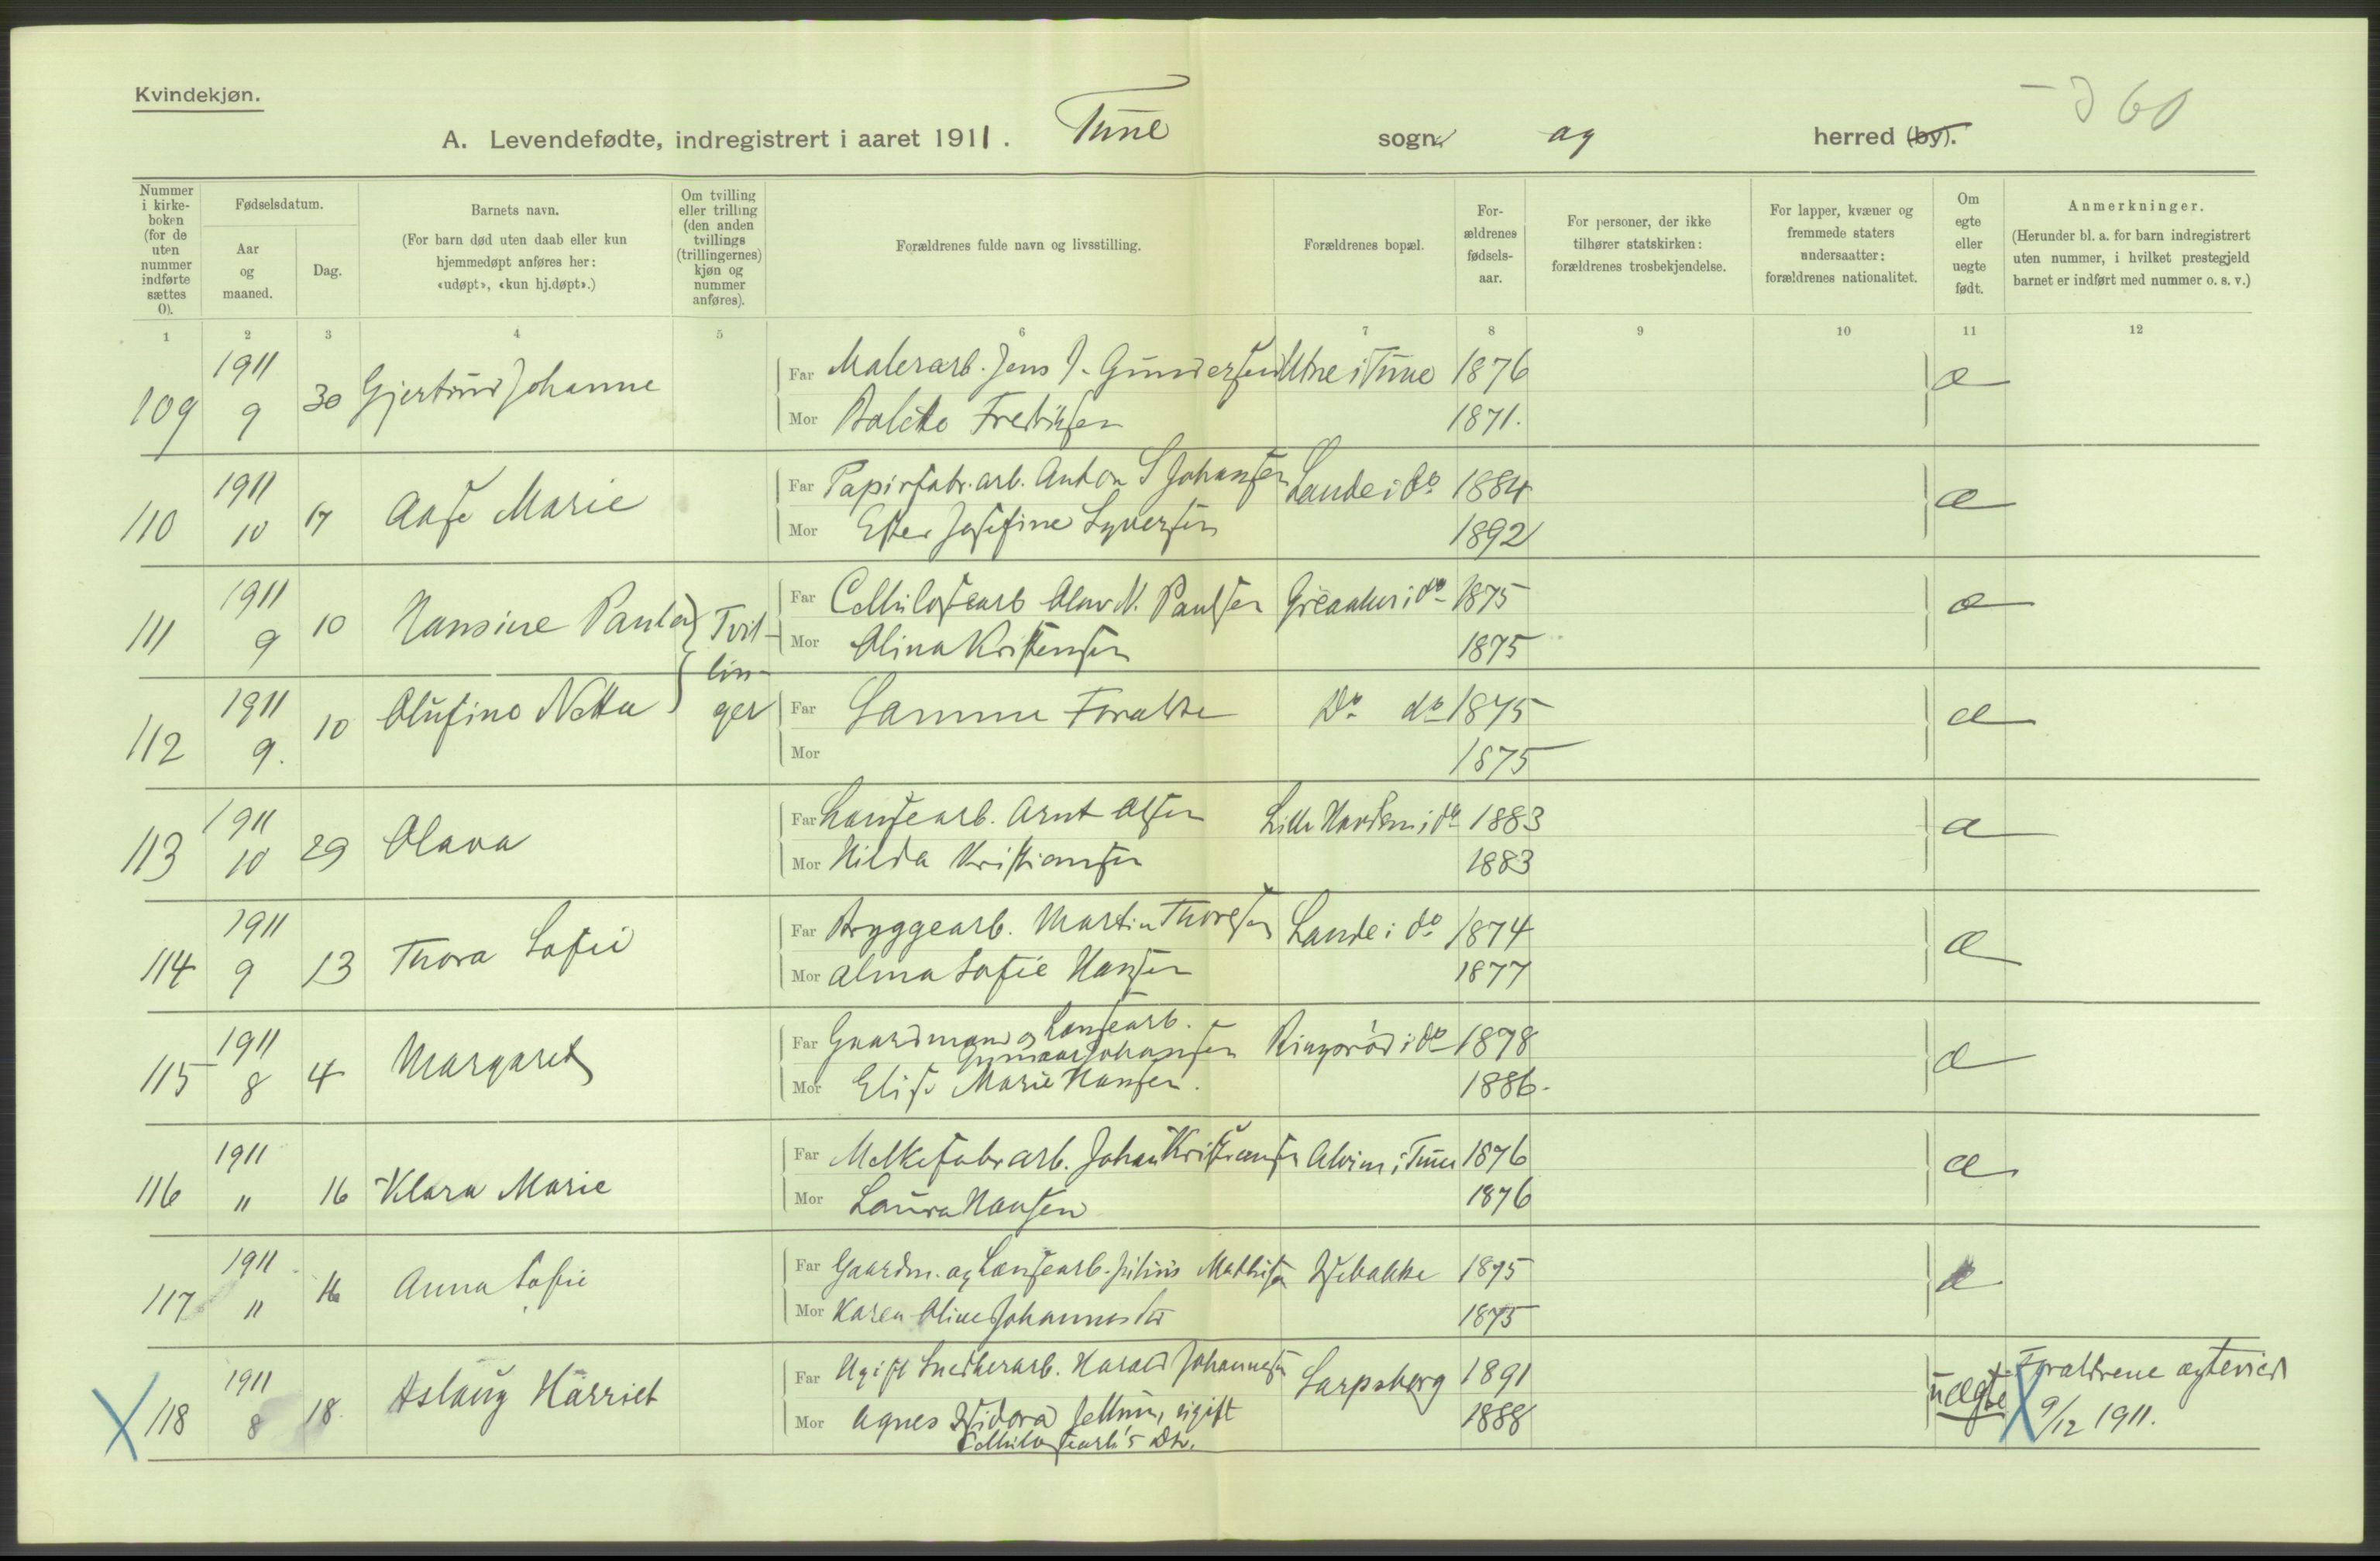 Kvindekjøn.
A. Levendefødte, indregistrert i aaret 1911. Tune sogn og herred (by).
Nummer i kirkeboken (for de uten nummer indførte sættes 0).
Fødselsdatum.
Aar og maaned.
Dag.
Barnets navn.
(For barn død uten daab eller kun hjemmedøpt anføres her: «udøpt», «kun hj.døpt».)
Om tvilling eller trilling (den anden tvillings (trillingernes) kjøn og nummer anføres).
Forældrenes fulde navn og livsstilling.
Forældrenes bopæl.
Forældrenes fødselsaar.
For personer, der ikke tilhører statskirken: forældrenes trosbekjendelse.
For lapper, kvæner og fremmede staters undersaatter: forældrenes nationalitet.
Om egte eller uegte født.
Anmerkninger.
(Herunder bl. a. for barn indregistrert uten nummer, i hvilket prestegjeld barnet er indført med nummer o. s. v.)
1 2 3 4 5 6 7 8 9 10 11 12
109 1911 9 30 Gjertrud Johanne Far Malerarb. Jens J. Gundersen i Tune 1876 æ
Mor Fredriksen 1871.
110 1911 10 17 Aase Marie Far Papirfabr.arb. Anton S Johansen Lande i do 1884 æ
Mor Ester Josefine Syversen 1892
111 1911 9 10 Hansine Paula Tvillinger Far Cellulosearb Olav N. Paulsen Greaaker i do 1875 æ
Mor Olina Kristensen 1875
112 1911 9. 10 Olufine Netta Far Samme Foraldre Do do 1875 æ
Mor 1875
113 1911 10 29 Olava Far Landsearb. Arnt Olsen Lille i do 1883 æ
Mor Hilda Kristiansen 1883
114 1911 9 13 Thora Sofie Far Bryggearb. Martin Thoresen Lande i do 1874 æ
Mor Alma Sofie Hansen 1877
115 1911 8 4 Margaret Far Gaardmand og Lansearb. Johansen i do 1878 æ
Mor Elise Marie Hansen. 1886.
116 1911 " 16 Klara Marie Far Melkefabrarb. Johan Kristiansen Alvim i Tune 1876 æ
Mor Laura Hansen 1876
117 1911 " 16 Anna Sofie Far Gaardm. og Lansearb. Julius Mathisen Isebakke 1875 æ
Mor Karen Oline Johannesdtr 1875
X 118 1911 8 18. Aslaug Harriet Far Ugift Snedkerarb. Harald Johannesen Sarpsborg 1891 uægte X Foraldrene ægteviet 9/12 1911.
Mor Agnes Isidora Jellum, ugift Cellulosearb's Dtr. 1888